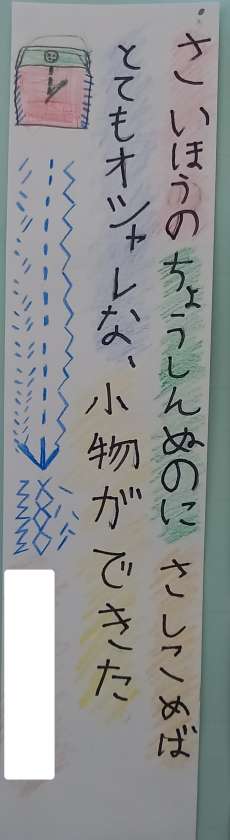 さいほうのちょうしんぬのに さしこめば
とてもオシャレな、小物ができた